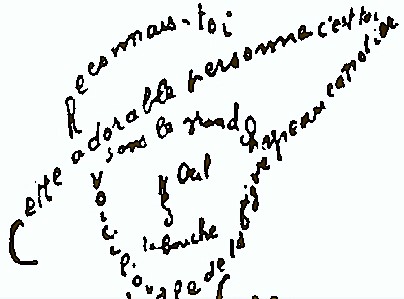 Reconnais-toi
Cette adorable personne c'est toi
sous le grand chapeau canotier
Oeil
la bouche
Voici l'ovale de ta figure